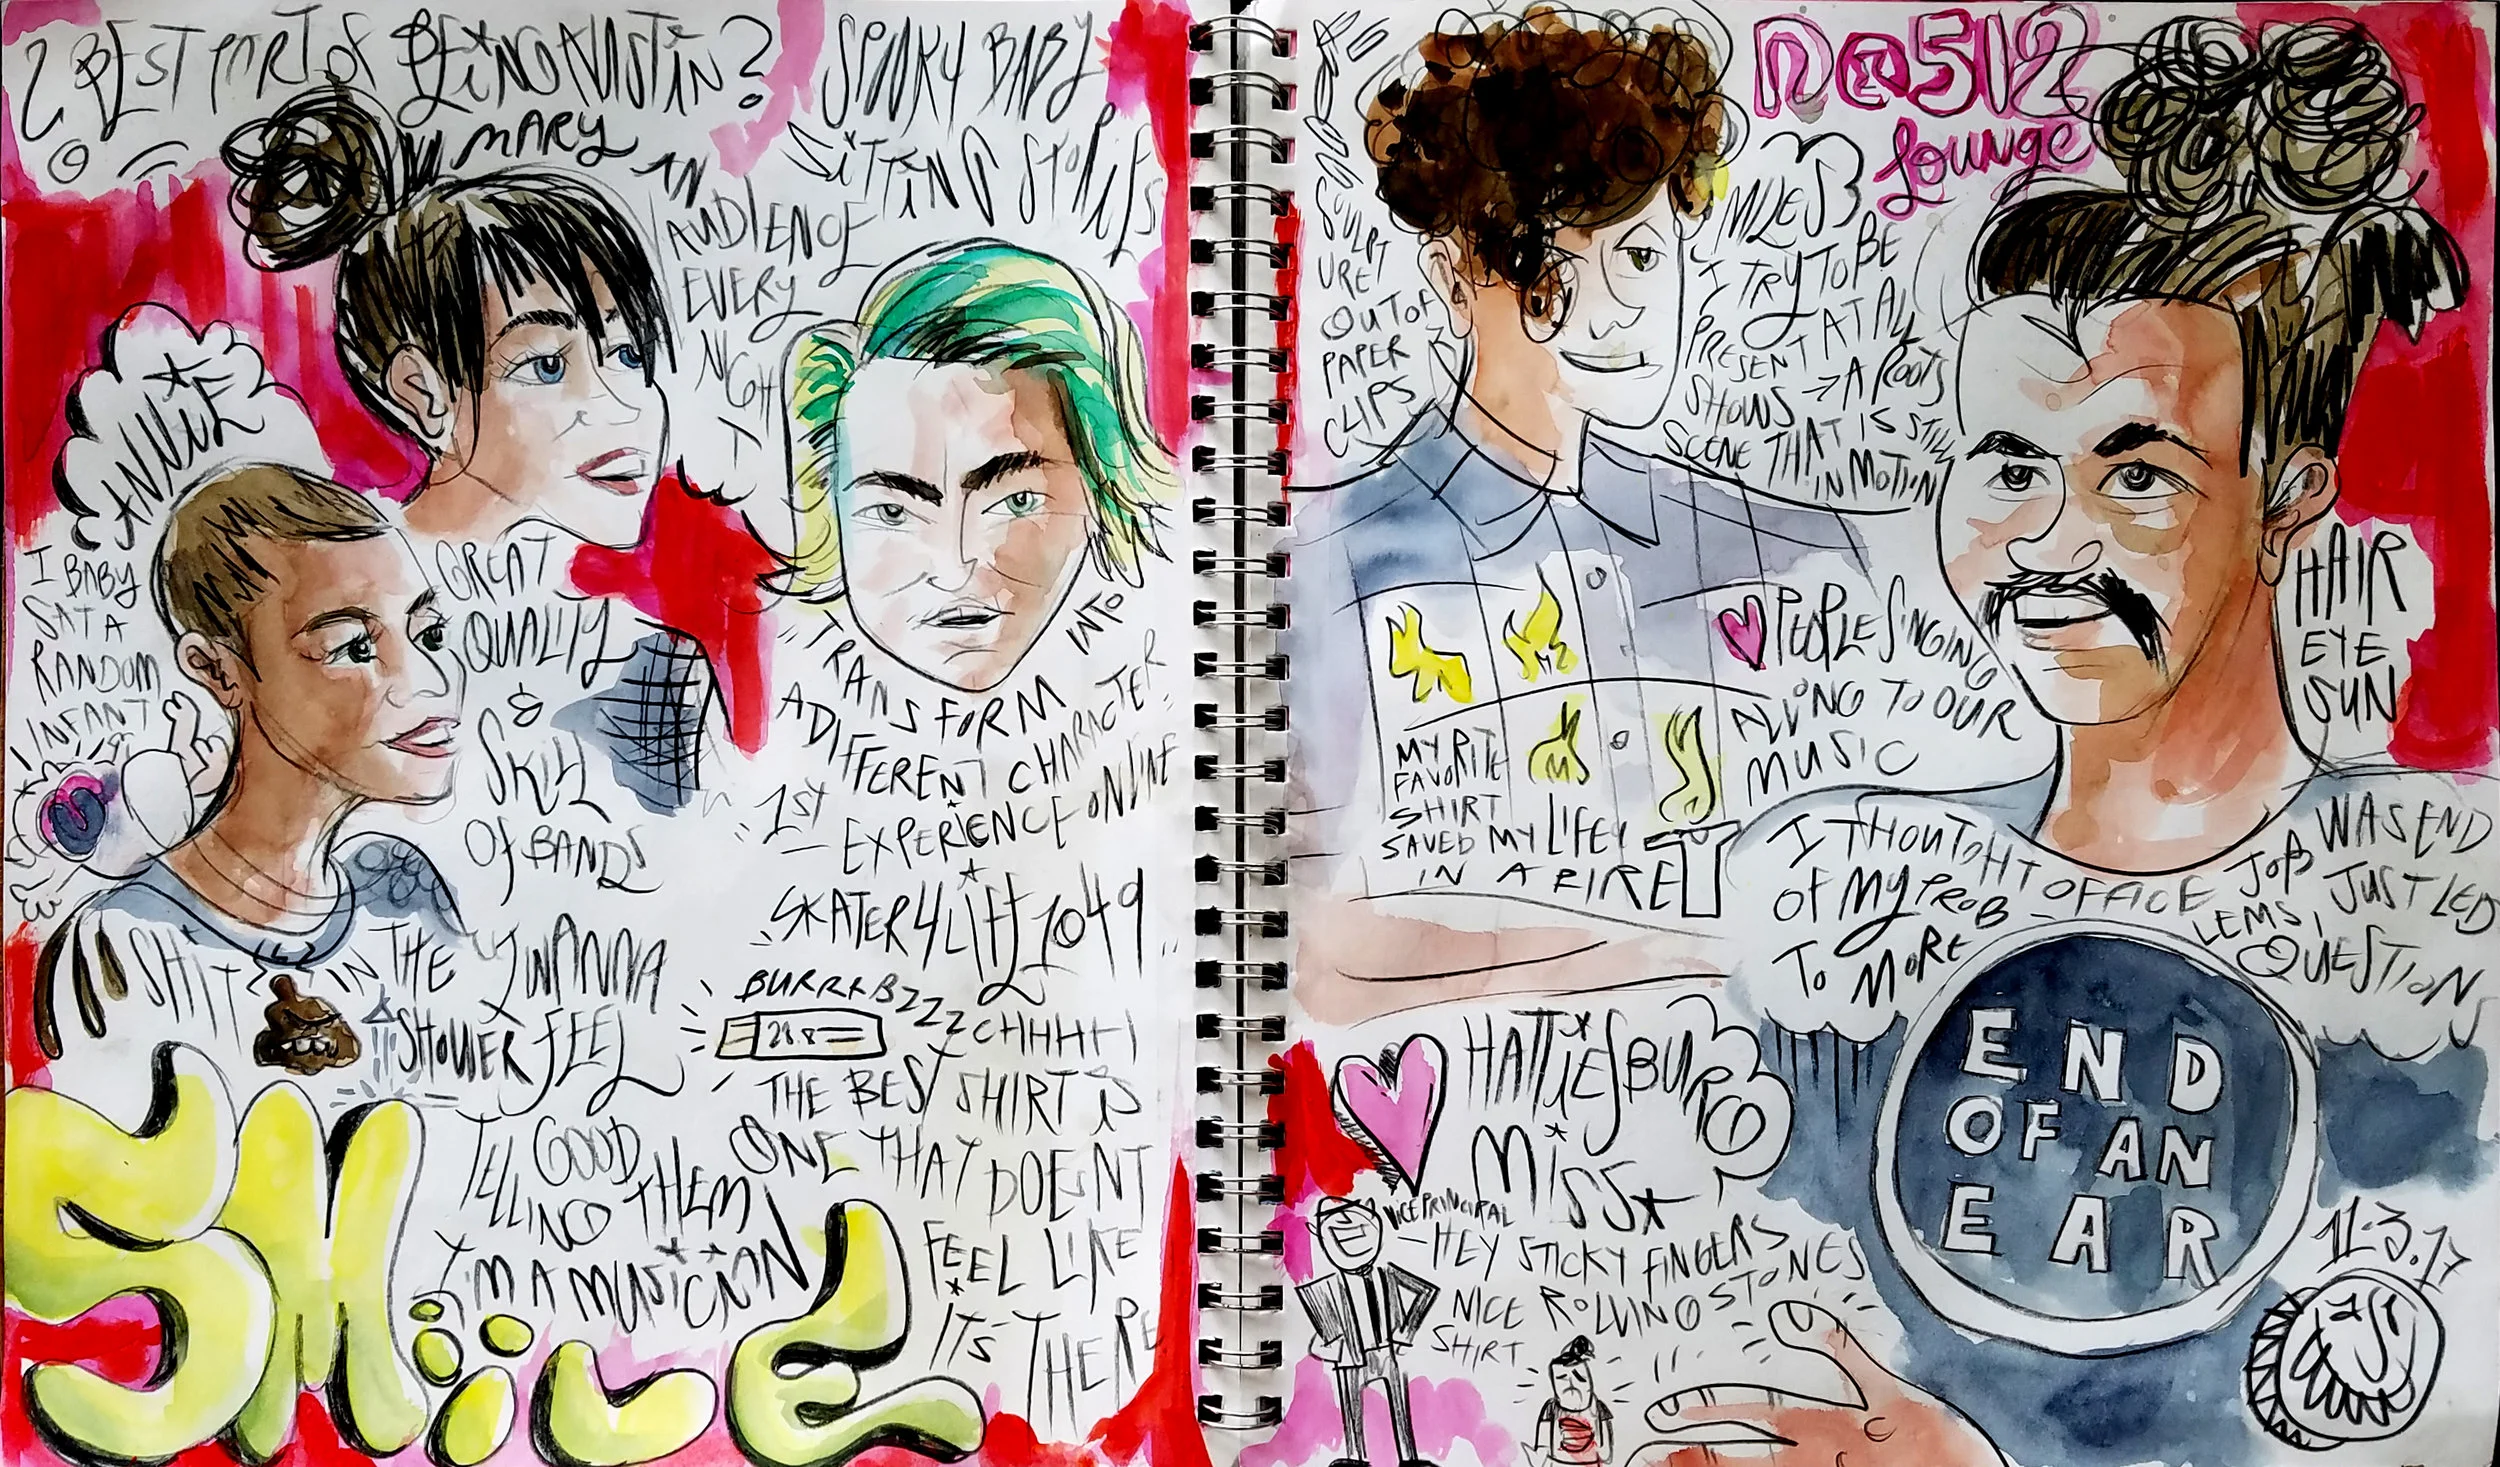 ¿ BEST PART OF BEING AUSTIN?
MARY
AN
AUDIENCE
EVERY
NIGHT
SPUNKY BABY
SITTING STORIES
ANNIE
I BABY
SAT A
RANDOM
INFANT
GREAT
QUALITY
&
SKILL
OF BANDS
"TRANSFORM INTO
A DIFFERENT CHARACTER"
"1ST
EXPERIENCE ONLINE
SKATER4LIFE1049"
SHIT IN THE
SHOWER
I WANNA
FEEL
GOOD
TELLING THEM
I'M A MUSICIAN
BURRRBZZZ CHHHH
28.8
THE BEST SHIRT IS
ONE THAT DOESNT
FEEL LIKE
ITS THERE
SMiiLE
SCULPT
URE
OUT OF
PAPER
CLIPS
512
Lounge
MILES
I TRY TO BE
PRESENT AT ALL
SHOWS → A ROOTS
SCENE THAT IS STILL
IN MOTION
HAIR
EYE
SUN
PEOPLE SINGING
ALONG TO OUR
MUSIC
MY
FAVORITE
SHIRT
SAVED MY LIFE
IN A FIRE
I THOUTGHT OFFICE JOB WAS END
OF MY PROBLEMS, JUST LED
TO MORE QUESTIONS
HATTIESBURG
MISS
VICE PRINCIPAL
-HEY STICKY FINGERS
NICE ROLLING STONES
SHIRT
END
OF AN
EAR
11.3.17